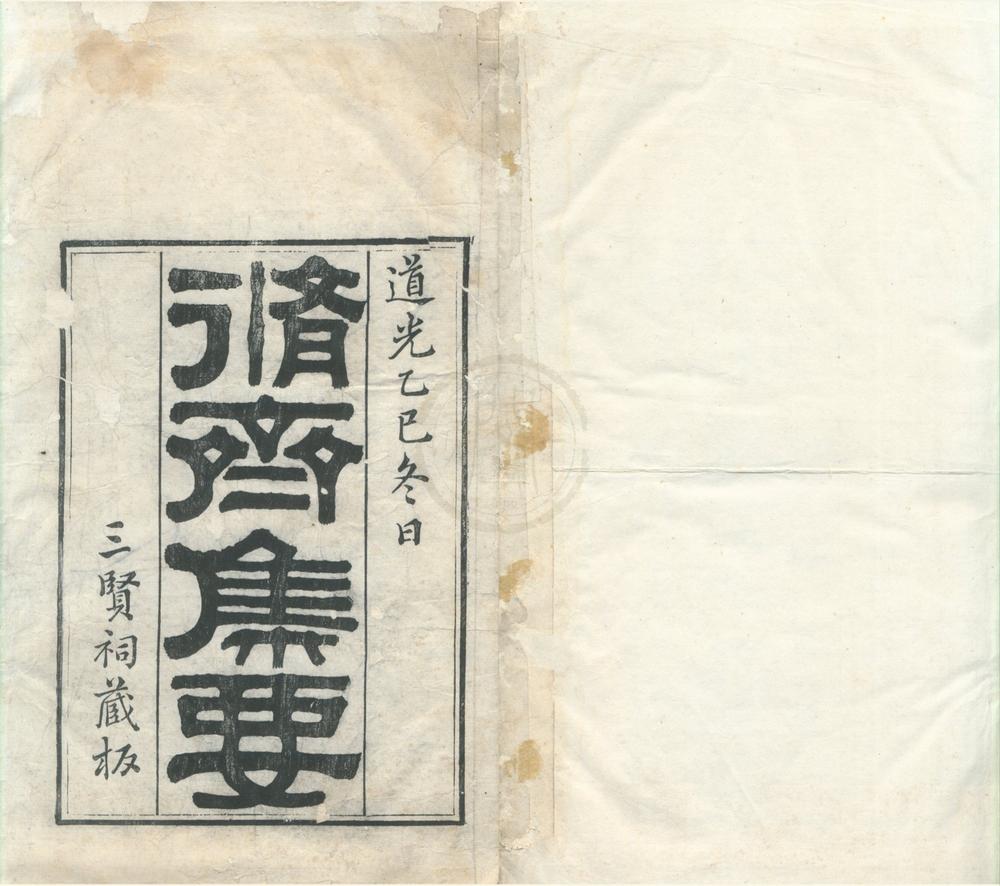 道光乙巳冬日
脩齊集要
三賢祠蔵板